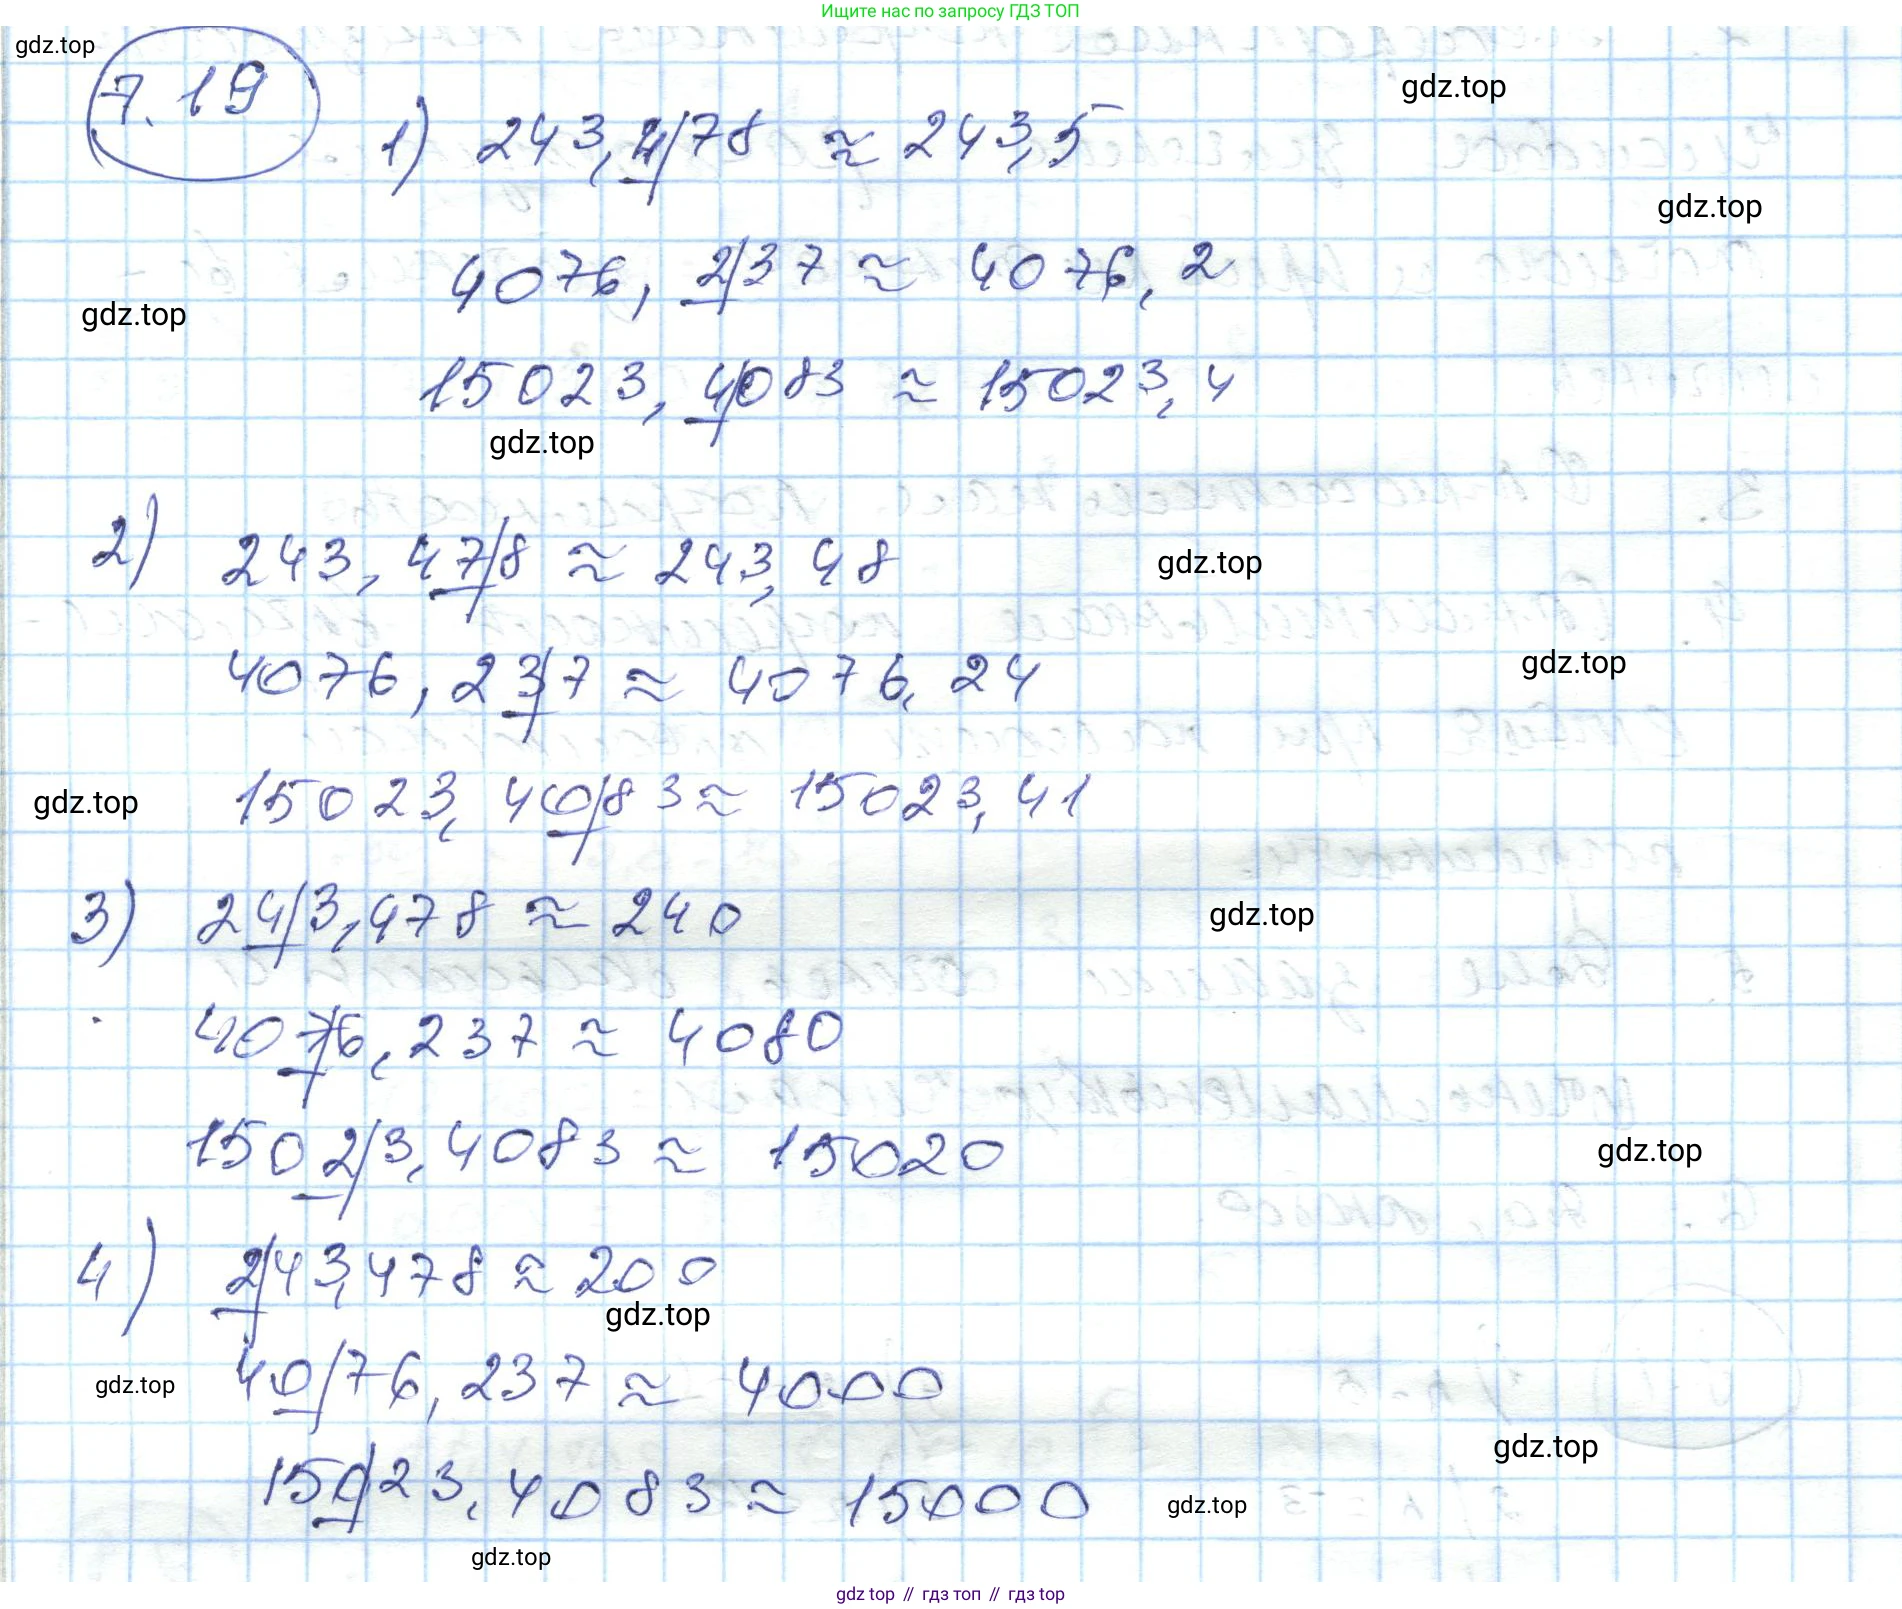 Ищите нас по запросу ГДЗ ТОП
gdz.top
7.19
gdz.top
1) 243,4/78 ≈ 243,5
gdz.top
4076,2/37 ≈ 4076,2
gdz.top
15023,4/083 ≈ 15023,4
gdz.top
2) 243,47/8 ≈ 243,48
gdz.top
4076,23/7 ≈ 4076,24
gdz.top
15023,40/83 ≈ 15023,41
gdz.top
3) 24/3,478 ≈ 240
gdz.top
407/6,237 ≈ 4080
1502/3,4083 ≈ 15020
gdz.top
4) 2/43,478 ≈ 200
gdz.top
40/76,237 ≈ 4000
gdz.top
gdz.top
150/23,4083 ≈ 15000
gdz.top
gdz.top
gdz top // гдз топ // гдз top